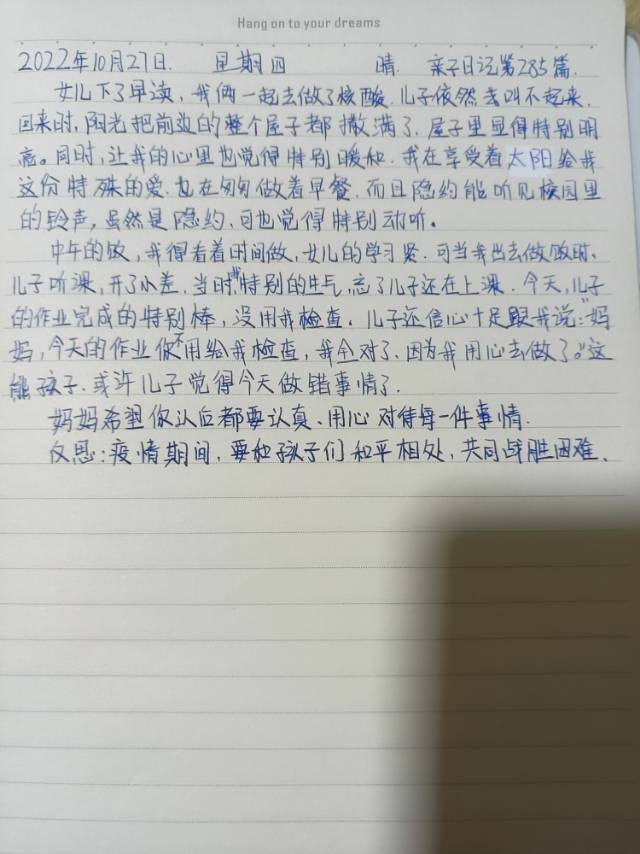 Hang on to your dreams
2022年10月27日. 星期四 晴. 亲子日记第285篇.
女儿下了早读，我俩一起去做了核酸.儿子依然去叫不起来.
回来时,阳光把前边的整个屋子都撒满了.屋子里显得特别明
亮。同时,让我的心里也觉得特别暖和.我在享受着太阳给我
这份特殊的爱.也在匆匆做着早餐.而且隐约能听见校园里
的铃声,虽然是隐约、可也觉得特别动听。
中午的饭，我得看着时间做,女儿的学习紧.可当我出去做饭时.
儿子听课,开了小差,当时特别的生气,忘了儿子还在上课.今天,儿子
的作业完成的特别棒，没用我检查.儿子还信心十足跟我说:"妈
妈,今天的作业你不用给我检查,我全对了.因为我用心去做了。"这
熊孩子.或许儿子觉得今天做错事情了.
妈妈希望你以后都要认真、用心对待每一件事情.
反思:疫情期间,要和孩子们和平相处,共同战胜困难.